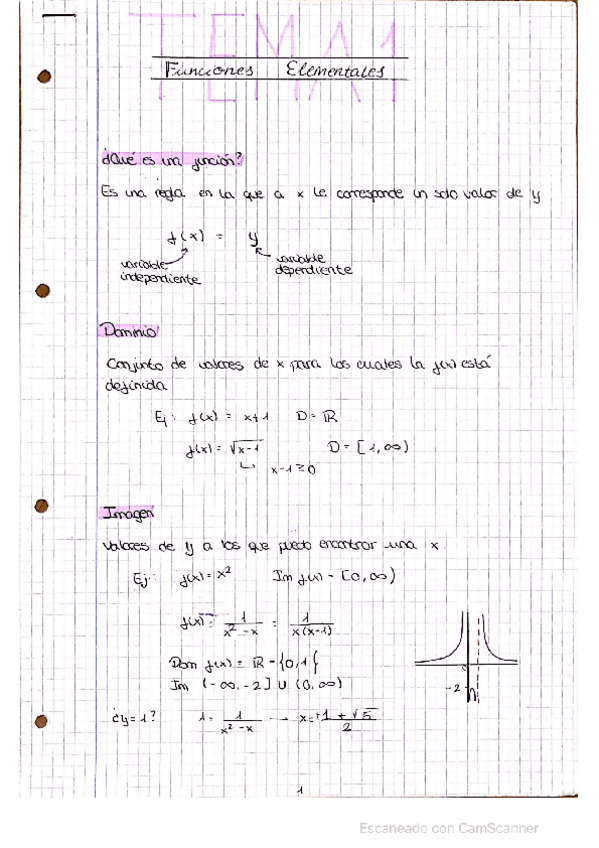 TEMA 1
Funciones Elementales
¿Qué es una función?
Es una regla en la que a x le corresponde un solo valor de y
f(x) = y
variable independiente
variable dependiente
Dominio
Conjunto de valores de x para los cuales la f(x) está
definida
Ej: f(x) = x+1 D = ℝ
f(x) = √x-1 D = [1, ∞)
x-1 ≥ 0
Imagen
Valores de y a los que puedo encontrar una x
Ej: f(x) = x² Im f(x) = [0, ∞)
f(x) = 1/(x² - x) = 1/(x(x-1))
Dom f(x) = ℝ - {0, 1{
Im (-∞, -2] ∪ (0, ∞)
-2
¿y = 1? 1 = 1/(x² - x) → x = (+1 + √5)/2
1
Escaneado con CamScanner